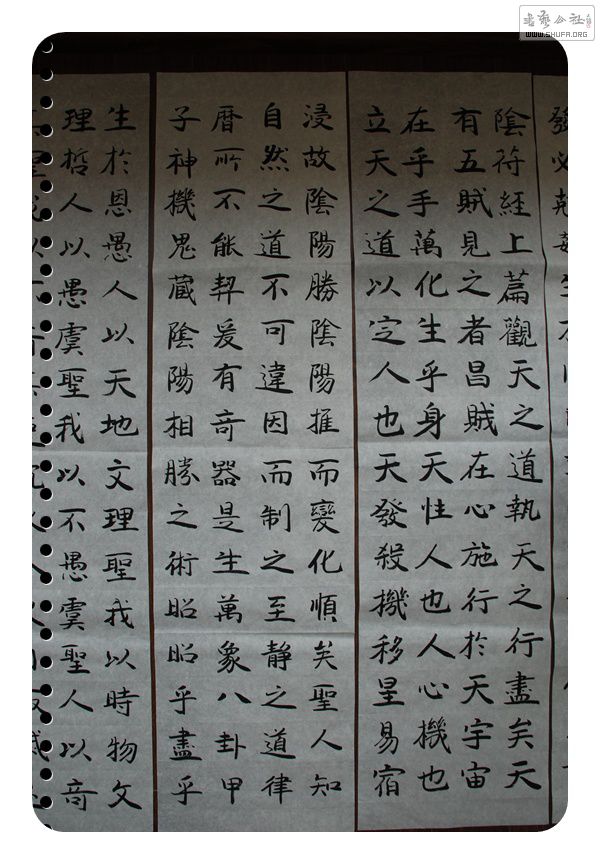 書藝公社
WWW.SHUFA.ORG
發必
陰符經上篇觀天之道執天之行盡矣天
有五賊見之者昌賊在心施行於天宇宙
在乎手萬化生乎身天性人也人心機也
立天之道以定人也天發殺機移星易宿
浸故陰陽勝陰陽推而變化順矣聖人知
自然之道不可違因而制之至靜之道律
曆所不能契爰有奇器是生萬象八卦甲
子神機鬼藏陰陽相勝之術昭昭乎盡乎
生於恩愚人以天地文理聖我以時物文
理哲人以愚虞聖我以不愚虞聖人以奇